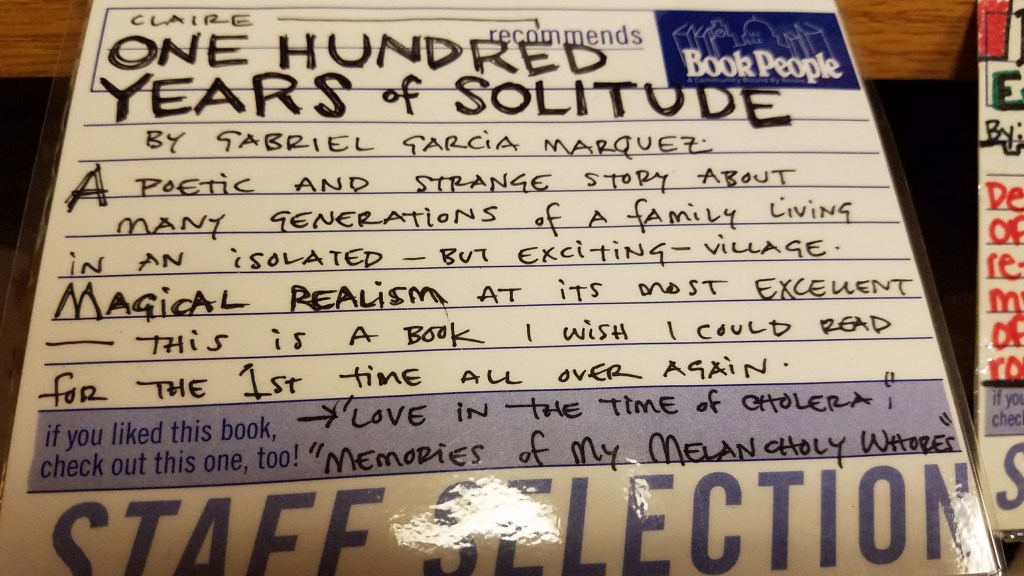 CLAIRE
recommends
ONE HUNDRED
YEARS of SOLITUDE
BY GABRIEL GARCIA MARQUEZ
A POETIC AND STRANGE STORY ABOUT
MANY GENERATIONS of A family LIVING
iN AN iSOLATED – BUT EXCITING – VILLAGE.
MAGICAL REALISM AT ITS MOST EXCELLENT
— THIS iS A BOOK I WISH I COULD READ
foR THE 1st TIME ALL OVER AGAIN.
if you liked this book,
check out this one, too!
→ "LOVE IN THE TIME of CHOLERA",
"MEMORIES of MY MELANCHOLY WHORES"
STAFF SELECTION
Book People
A Community Bound by Books
By:
De
of
re-
mu
of
ro
if you
check
S